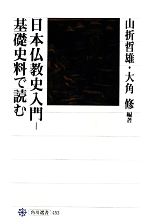 山折哲雄・大角 修 編著
日本仏教史入門―
基礎史料で読む
角川選書